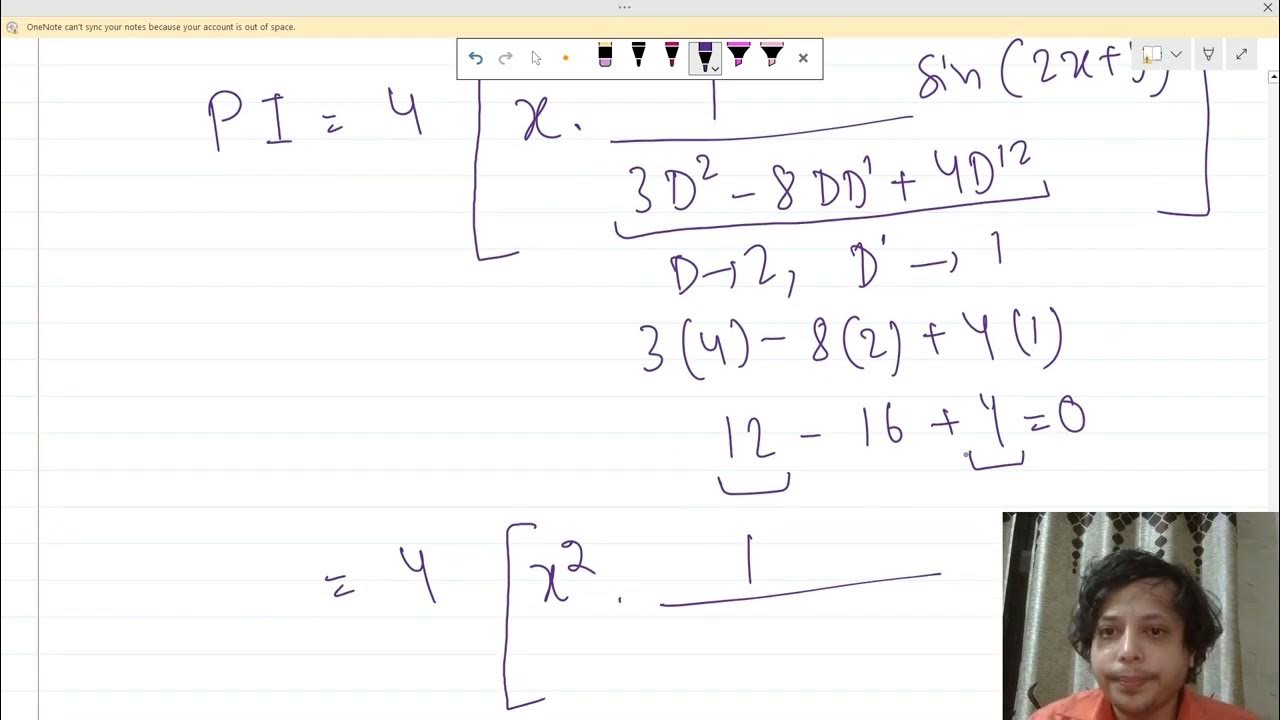 OneNote can't sync your notes because your account is out of space.
PI = 4 [ x . 1 / (3D² - 8DD' + 4D'²) sin(2x+y) ]
D → 2, D' → 1
3(4) - 8(2) + 4(1)
12 - 16 + 4 = 0
= 4 [ x² . 1